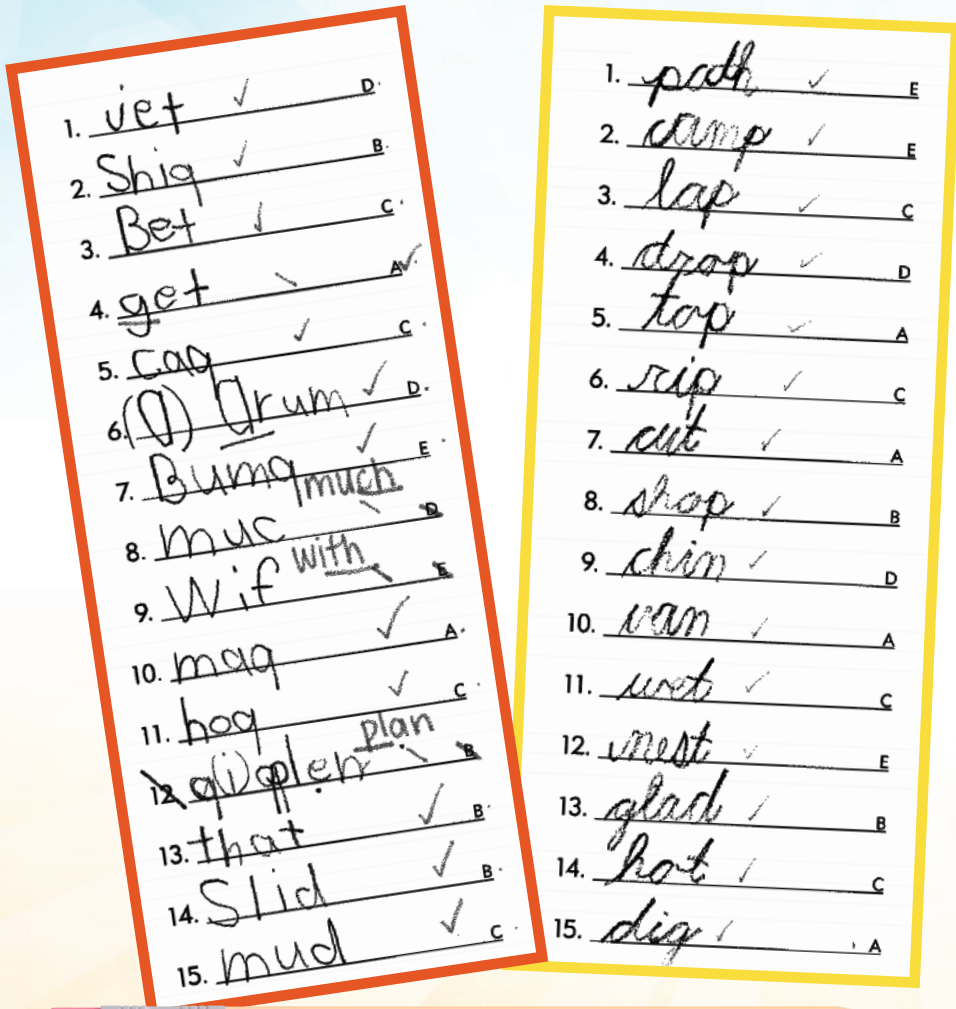 1. vet ✓ D.
2. Shiq ✓ B.
3. Bet ✓ C.
4. get \ A ✓.
5. caq ✓ C.
6. (a) drum ✓ D.
7. Bumq ✓ E.
much
8. muc \ D
with
9. Wif \ E
10. maq ✓ A.
11. hoq ✓ C.
plan
12. q(i) plen \ B
13. that ✓ B.
14. Slid ✓ B.
15. mud ✓ C.
1. path ✓ E
2. camp ✓ E
3. lap ✓ C
4. drop ✓ D
5. top ✓ A
6. rip ✓ C
7. cut ✓ A
8. shop ✓ B
9. chin ✓ D
10. van ✓ A
11. wet ✓ C
12. nest ✓ E
13. glad ✓ B
14. hot ✓ C
15. dig ✓ A